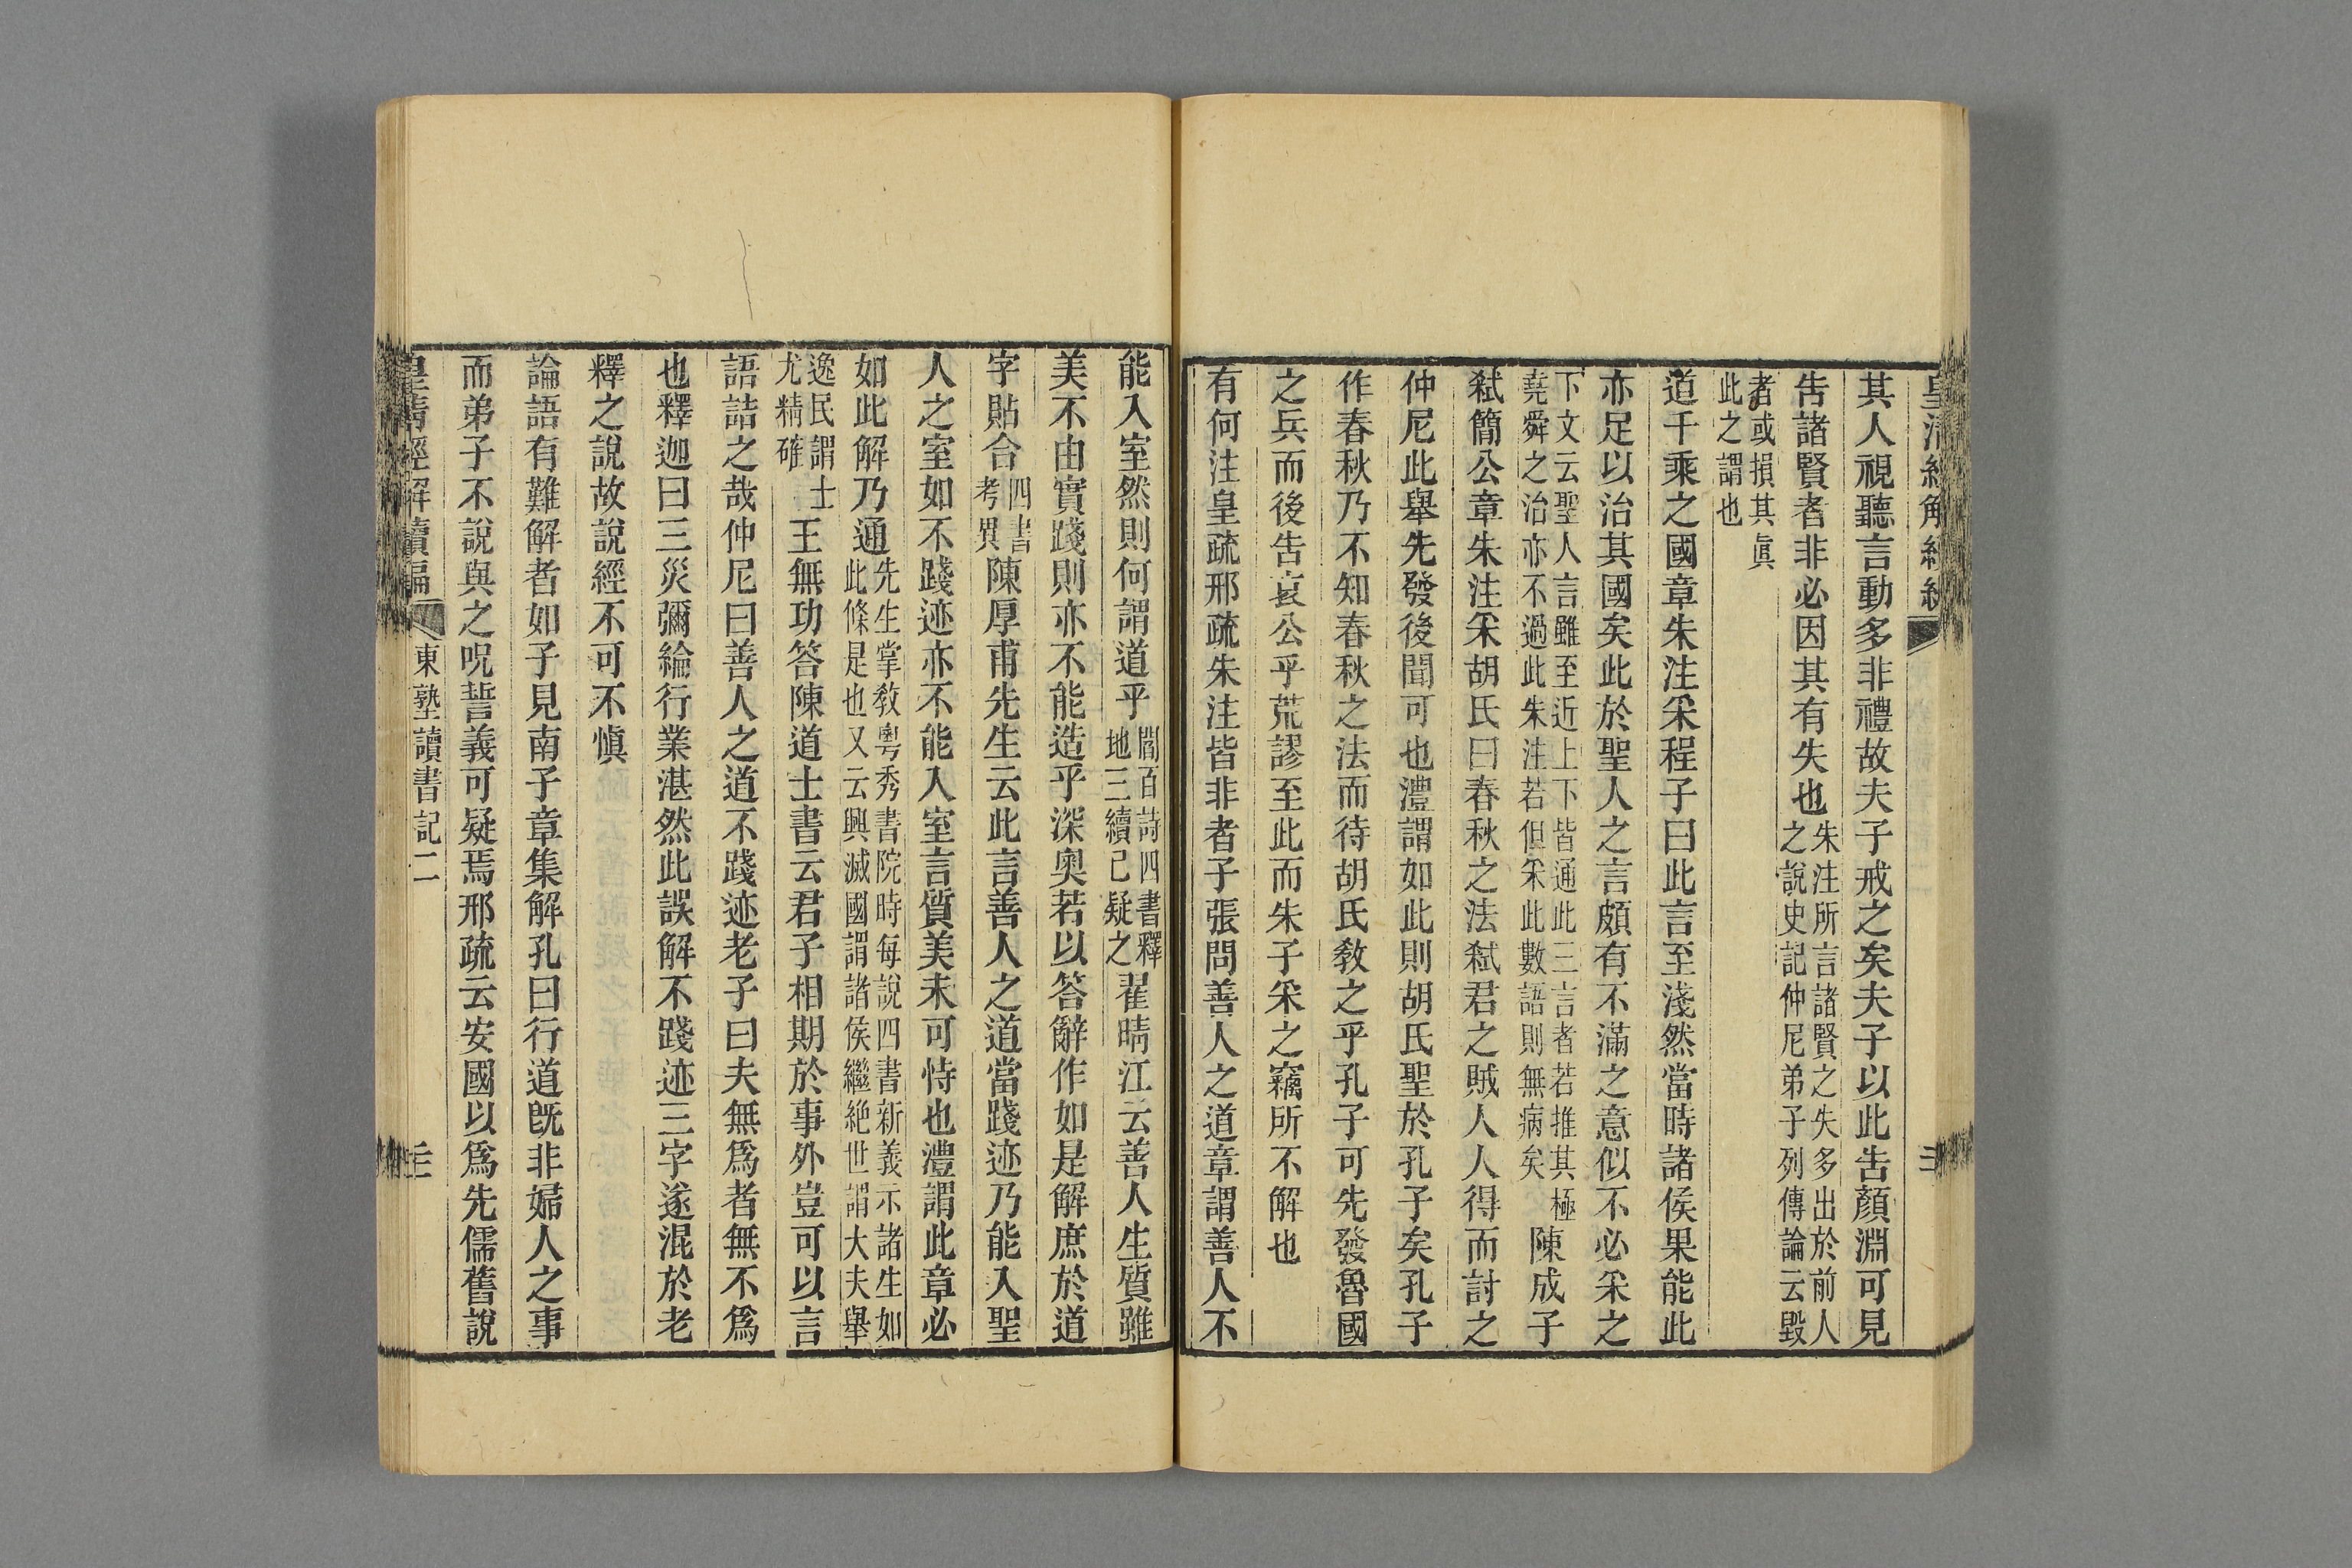 皇清經解續編
其人視聽言動多非禮故夫子戒之矣夫子以此告顏淵可見
告諸賢者非必因其有失也朱注所言諸賢之失多出於前人之說史記仲尼弟子列傳論云毀
者或損其眞此之謂也
道千乘之國章朱注采程子曰此言至淺然當時諸侯果能此
亦足以治其國矣此於聖人之言頗有不滿之意似不必采之
下文云聖人言雖至近上下皆通此三言者若推其極堯舜之治亦不過此朱注若但采此數語則無病矣陳成子
弒簡公章朱注采胡氏曰春秋之法弒君之賊人人得而討之
仲尼此舉先發後聞可也澧謂如此則胡氏聖於孔子矣孔子
作春秋乃不知春秋之法而待胡氏敎之乎孔子可先發魯國
之兵而後告哀公乎荒謬至此而朱子采之竊所不解也
有何注皇疏邢疏朱注皆非者子張問善人之道章謂善人不
能入室然則何謂道乎閻百詩四書釋地三續已疑之翟晴江云善人生質雖
美不由實踐則亦不能造乎深奧若以答辭作如是解庶於道
字貼合四書考異陳厚甫先生云此言善人之道當踐迹乃能入聖
人之室如不踐迹亦不能入室言質美未可恃也澧謂此章必
如此解乃通先生掌敎粵秀書院時每說四書新義示諸生如此條是也又云興滅國謂諸侯繼絶世謂大夫舉
逸民謂士尤精確王無功答陳道士書云君子相期於事外豈可以言
語詰之哉仲尼曰善人之道不踐迹老子曰夫無爲者無不爲
也釋迦曰三災彌綸行業湛然此誤解不踐迹三字遂混於老
釋之說故說經不可不愼
論語有難解者如子見南子章集解孔曰行道旣非婦人之事
而弟子不說與之呪誓義可疑焉邢疏云安國以爲先儒舊說
皇淸經解續編 東塾讀書記二